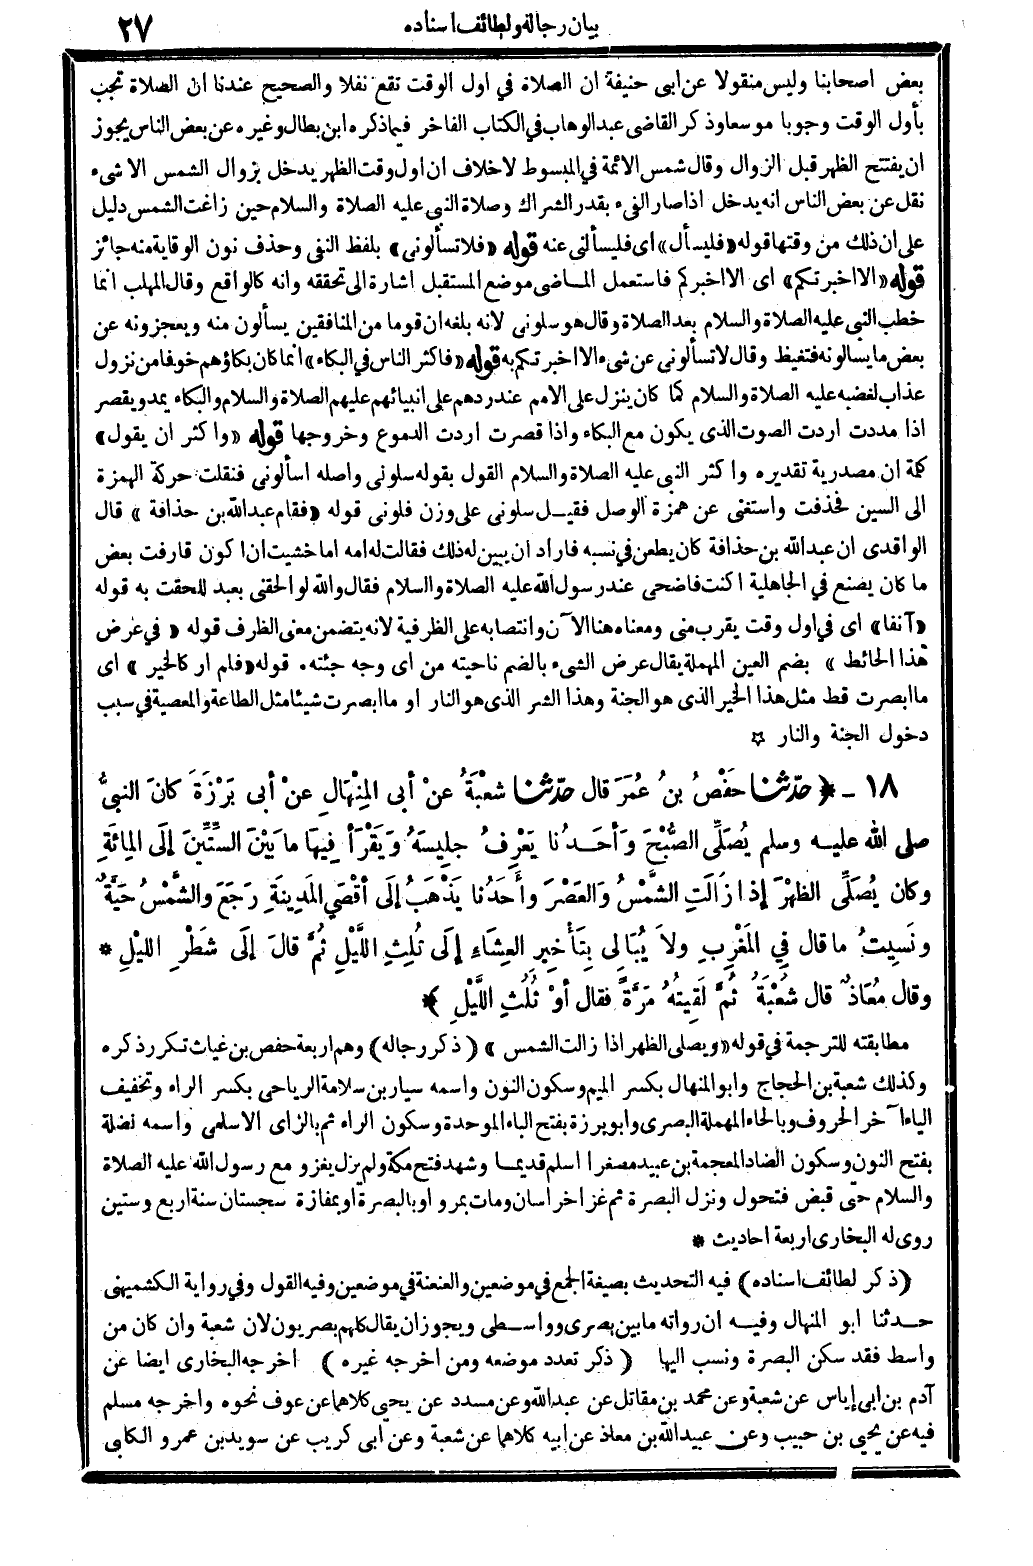 بيان رجاله ولطائف اسناده
٢٧
بعض اصحابنا وليس منقولا عن ابى حنيفة ان الصلاة في اول الوقت تقع نفلا والصحيح عندنا ان الصلاة تجب
بأول الوقت وجوبا موسعا وذكر القاضى عبد الوهاب في الكتاب الفاخر فيما ذكره ابن بطال وغيره عن بعض الناس يجوز
ان يفتتح الظهر قبل الزوال وقال شمس الائمة في المبسوط لا خلاف ان اول وقت الظهر يدخل بزوال الشمس الا شىء
نقل عن بعض الناس انه يدخل اذا صار الفىء بقدر الشراك وصلاة النبى عليه الصلاة والسلام حين زاغت الشمس دليل
على ان ذلك من وقتها قوله «فليسأل» اى فليسألنى عنه قوله «فلا تسألونى» بلفظ النفى وحذف نون الوقاية منه جائز
قوله «الا اخبرتكم» اى الا اخبركم فاستعمل الماضى موضع المستقبل اشارة الى تحققه وانه كالواقع وقال المهلب انما
خطب النبى عليه الصلاة والسلام بعد الصلاة وقال هو سلونى لانه بلغه ان قوما من المنافقين يسألون منه ويعجزونه عن
بعض ما يسالونه فتغيظ وقال لا تسألونى عن شىء الا اخبرتكم به قوله «فاكثر الناس في البكاء» انما كان بكاؤهم خوفا من نزول
عذاب لغضبه عليه الصلاة والسلام كما كان ينزل على الامم عند ردهم على انبيائهم عليهم الصلاة والسلام والبكاء يمد ويقصر
اذا مددت اردت الصوت الذى يكون مع البكاء واذا قصرت اردت الدموع وخروجها قوله «واكثر ان يقول»
كلمة ان مصدرية تقديره واكثر النبى عليه الصلاة والسلام القول بقوله سلونى واصله اسألونى فنقلت حركة الهمزة
الى السين فحذفت واستغنى عن همزة الوصل فقيل سلونى على وزن فلونى قوله «فقام عبد الله بن حذافة» قال
الواقدى ان عبد الله بن حذافة كان يطعن في نسبه فاراد ان يبين له ذلك فقالت له امه اما خشيت ان اكون قارفت بعض
ما كان يصنع في الجاهلية اكنت فاضحى عند رسول الله عليه الصلاة والسلام فقال والله لو الحقنى بعبد للحقت به قوله
«آنفا» اى في اول وقت يقرب منى ومعناه هنا الآن وانتصابه على الظرفية لانه يتضمن معنى الظرف قوله «في عرض
هذا الحائط» بضم العين المهملة يقال عرض الشىء بالضم ناحيته من اى وجه جئته. قوله «فلم ار كالخير» اى
ما ابصرت قط مثل هذا الخير الذى هو الجنة وهذا الشر الذى هو النار او ما ابصرت شيئا مثل الطاعة والمعصية في سبب
دخول الجنة والنار ☆
١٨ ـ ﴿ حدّثنا حَفْصُ بنُ عُمَرَ قال حدّثنا شعْبَةُ عنْ أبى المِنْهَالِ عنْ أبى بَرْزَةَ كانَ النبىُّ
صلى الله عليه وسلم يُصَلِّى الصُّبْحَ وَأحَدُنا يَعْرِفُ جلِيسَهُ وَيَقْرَأُ فِيهَا ما بَيْنَ السِّتِّينَ إلَى المِائَةِ
وكان يُصَلِّى الظهْرَ إذا زالَتِ الشَّمْسُ وَالعَصْرَ وأَحَدُنا يَذْهَبُ إلَى أقْصَى المَدِينَةِ رَجَعَ والشَّمْسُ حَيَّةٌ
ونَسِيتُ ما قال فِي المَغْرِبِ ولاَ يُبَالى بِتَأخِيرِ العِشَاءِ إلَى ثُلُثِ اللَّيْلِ ثُمَّ قالَ إلَى شَطْرِ الليْلِ *
وقال مُعَاذٌ قال شُعْبَةُ ثُمَّ لَقِيتُهُ مَرَّةً فقال أوْ ثُلُثِ اللَّيْلِ ﴾
مطابقته للترجمة في قوله «ويصلى الظهر اذا زالت الشمس» (ذكر رجاله) وهم اربعة حفص بن غياث تكرر ذكره
وكذلك شعبة بن الحجاج وابو المنهال بكسر الميم وسكون النون واسمه سيار بن سلامة الرياحى بكسر الراء وتخفيف
الياء آخر الحروف وبالحاء المهملة البصرى وابو برزة بفتح الباء الموحدة وسكون الراء ثم بالزاى الاسلمى واسمه نضلة
بفتح النون وسكون الضاد المعجمة بن عبيد مصغرا اسلم قديما وشهد فتح مكة ولم يزل يغزو مع رسول الله عليه الصلاة
والسلام حتى قبض فتحول ونزل البصرة ثم غزا خراسان ومات بمرو او بالبصرة او بمفازة سجستان سنة اربع وستين
روى له البخارى اربعة احاديث *
(ذكر لطائف اسناده) فيه التحديث بصيغة الجمع في موضعين والعنعنة في موضعين وفيه القول وفي رواية الكشميهنى
حدثنا ابو المنهال وفيه ان رواته ما بين بصرى وواسطى ويجوز ان يقال كلهم بصريون لان شعبة وان كان من
واسط فقد سكن البصرة ونسب اليها (ذكر تعدد موضعه ومن اخرجه غيره) اخرجه البخارى ايضا عن
آدم بن ابى إياس عن شعبة وعن محمد بن مقاتل عن عبد الله وعن مسدد عن يحيى كلاهما عن عوف نحوه واخرجه مسلم
فيه عن يحيى بن حبيب وعن عبيد الله بن معاذ عن ابيه كلاهما عن شعبة وعن ابى كريب عن سويد بن عمرو الكلبى